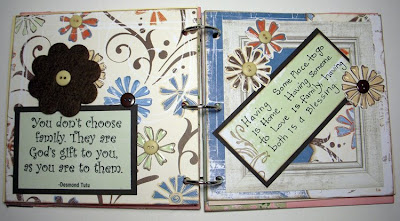 You don't choose
family. They are
God's gift to you,
as you are to them.
-Desmond Tutu
Having Some Place to go
is Home. Having Someone
to Love is family, having
both is a Blessing